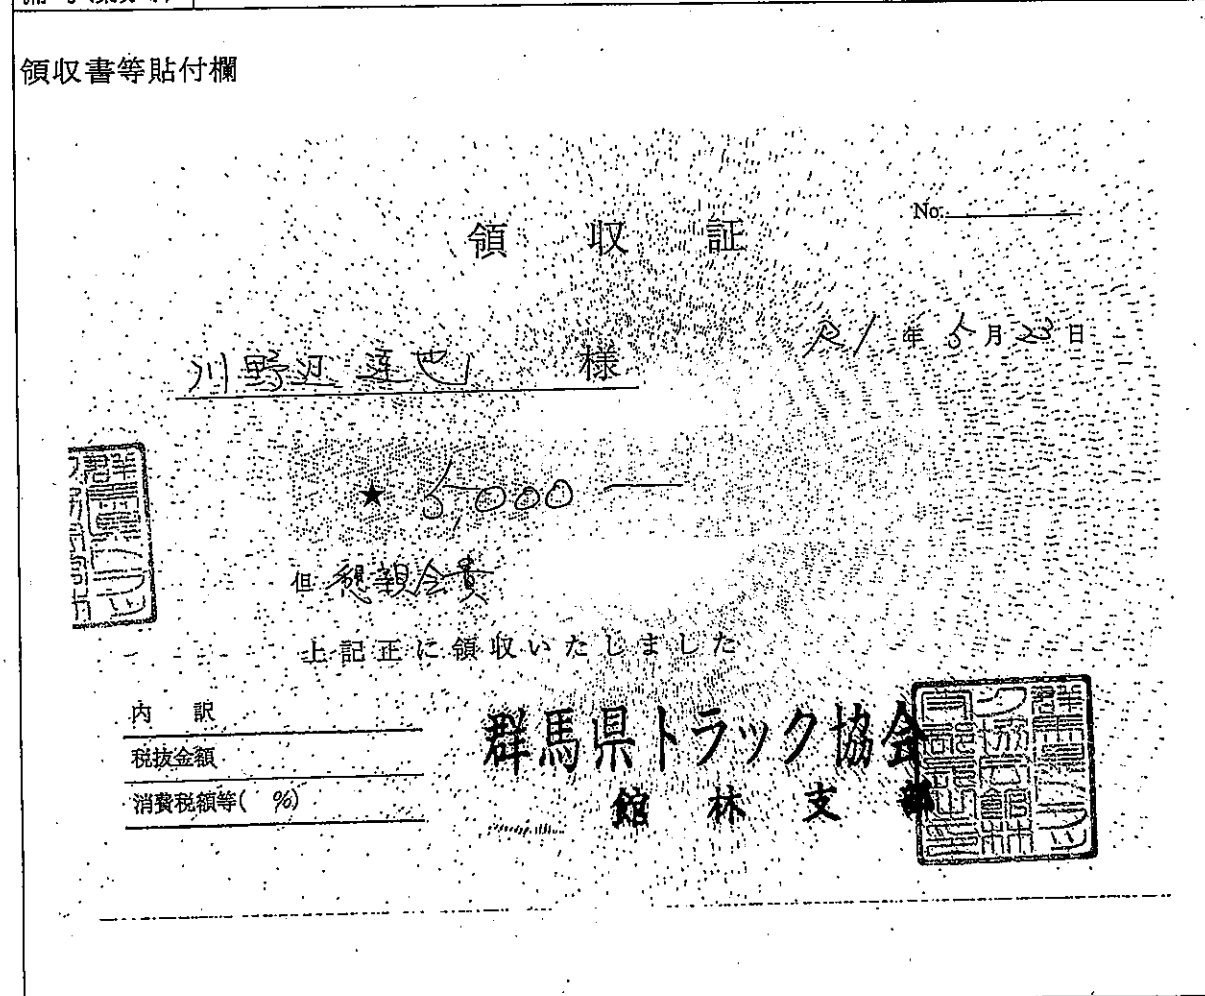 領収書等貼付欄
領 収 証
No.
R1年5月23日
川野辺 達也 様
★ 5,000 —
但 懇親会費
上記正に領収いたしました
内 訳
税抜金額
消費税額等( %)
群馬県トラック協会
館林支部